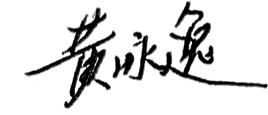 黄咏逸